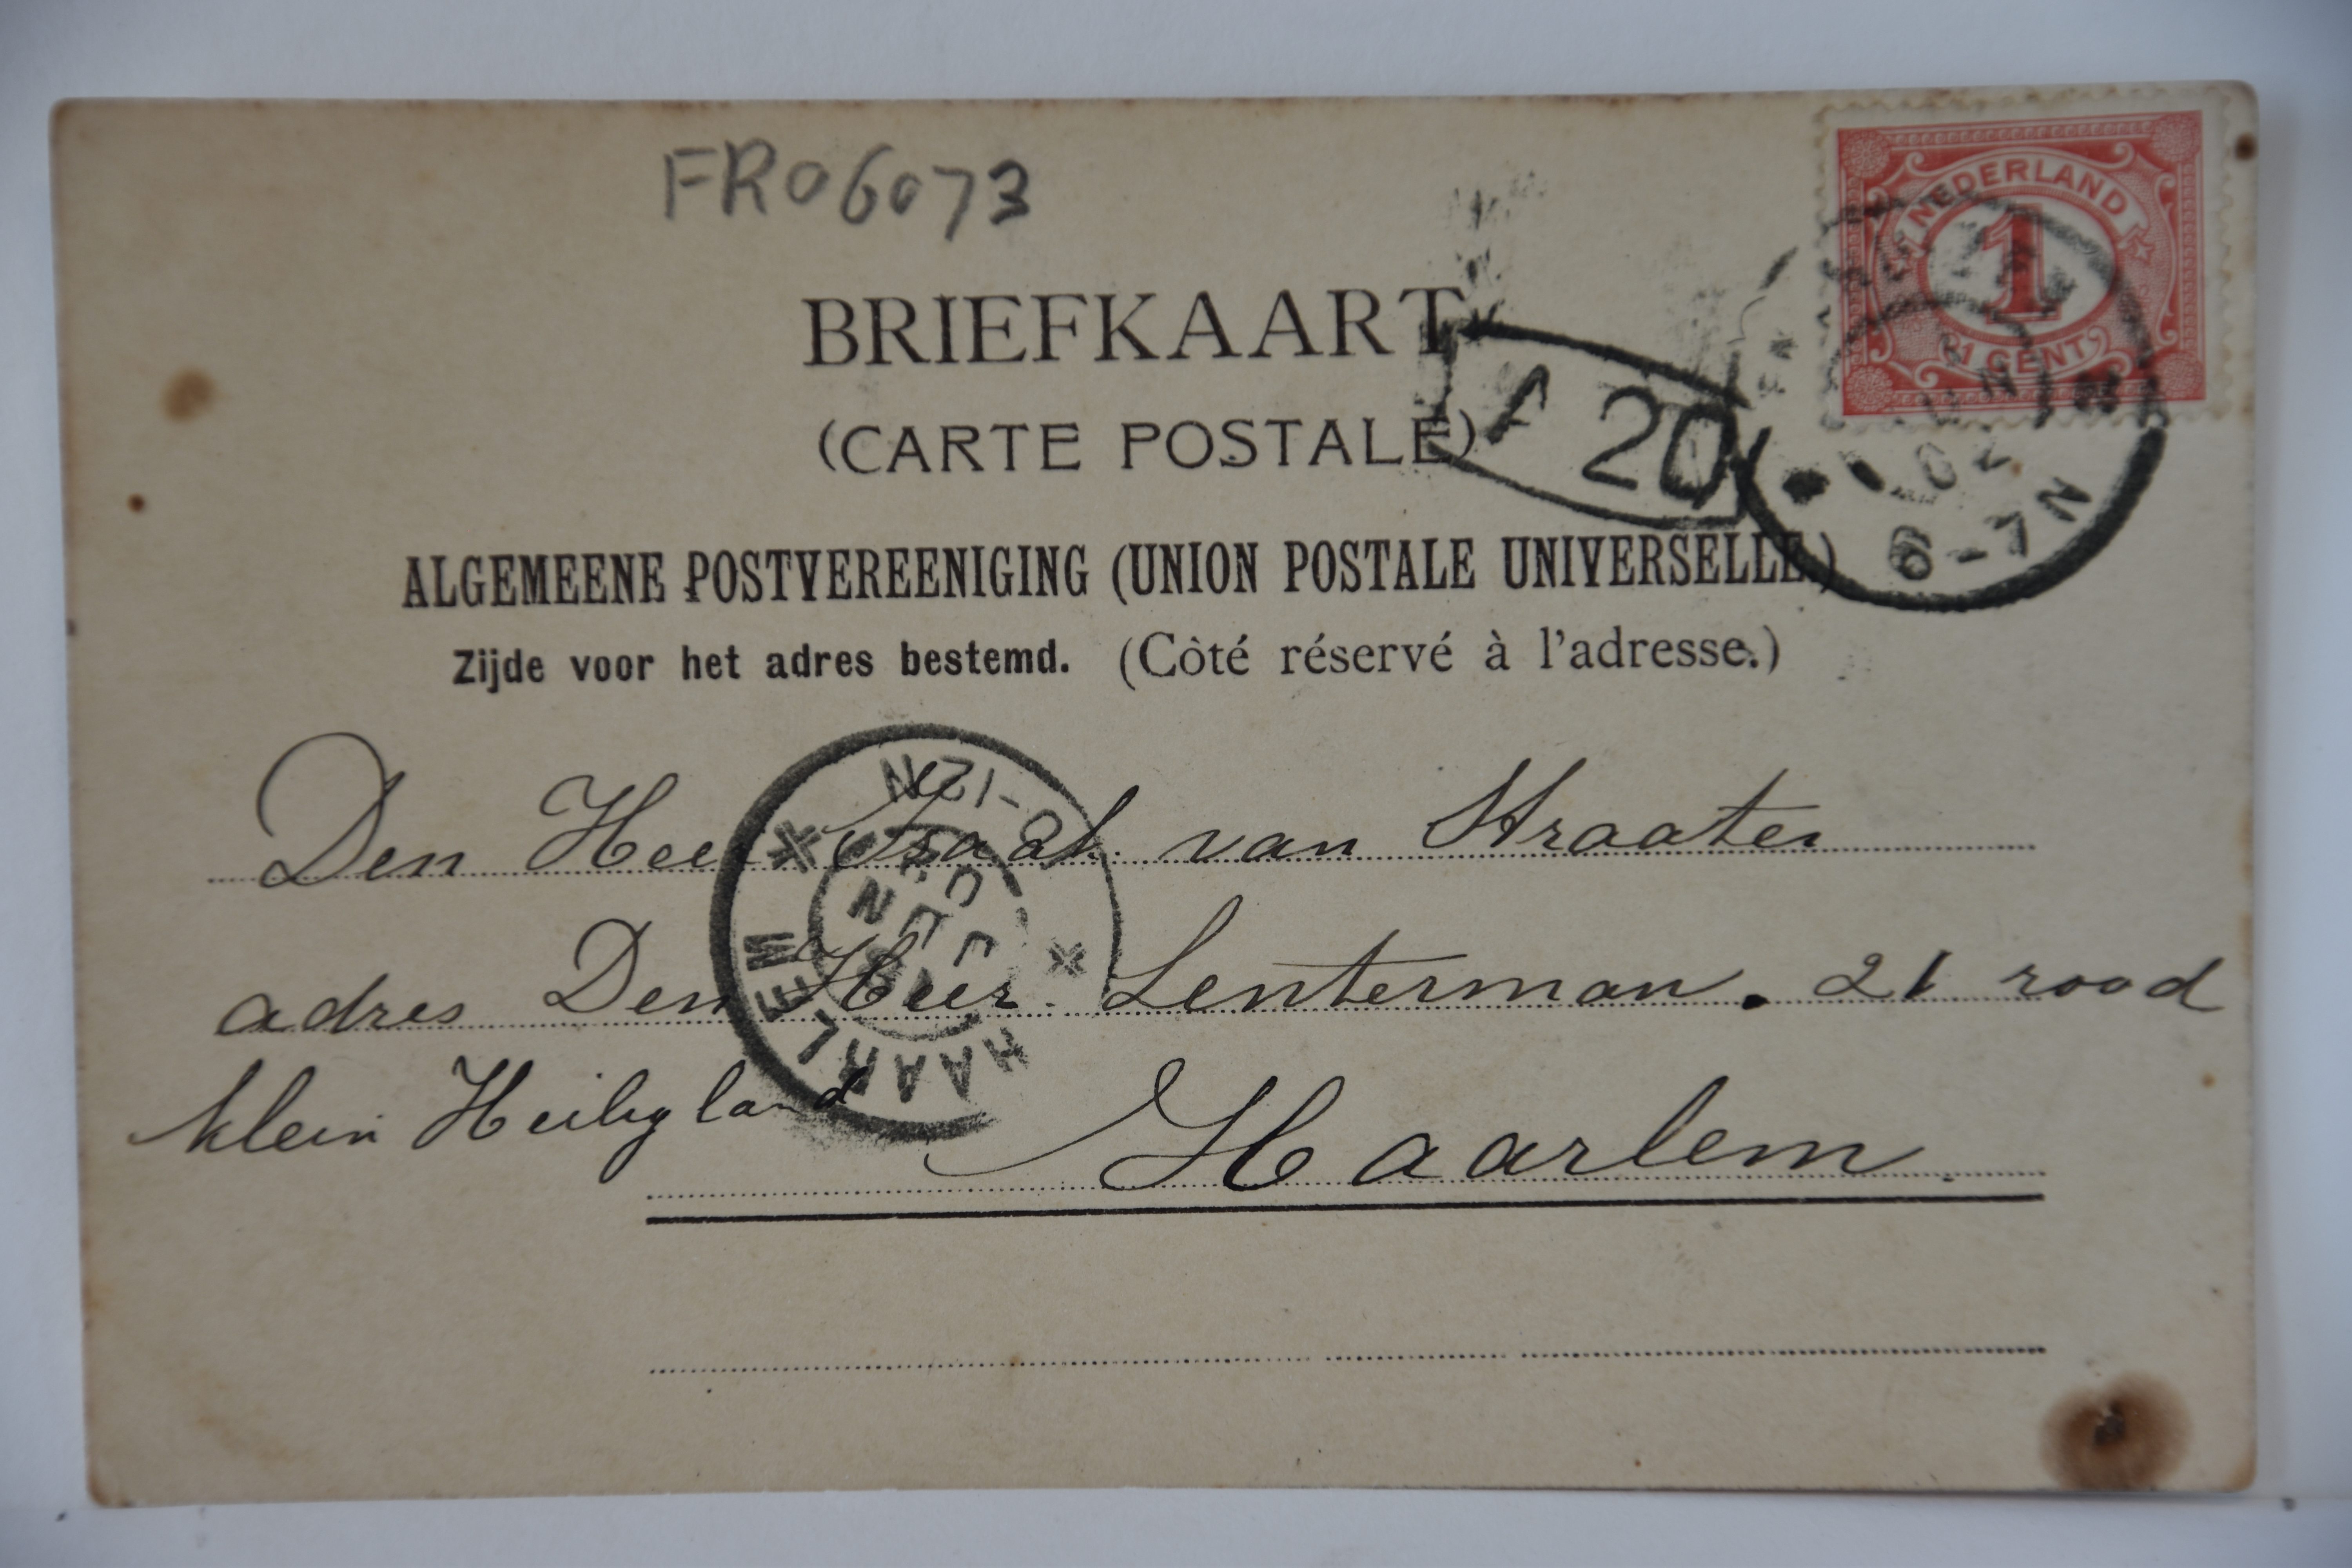 FR06073
NEDERLAND
1
1 CENT
BRIEFKAART
(CARTE POSTALE)
A 20
02
6-7N
ALGEMEENE POSTVEREENIGING (UNION POSTALE UNIVERSELLE.)
Zijde voor het adres bestemd. (Côté réservé à l'adresse.)
Den Heer Izaak van Straaten
adres Den Heer Lenterman. 21 rood
klein Heiligland
Haarlem.
HAARLEM
JUN
-12N